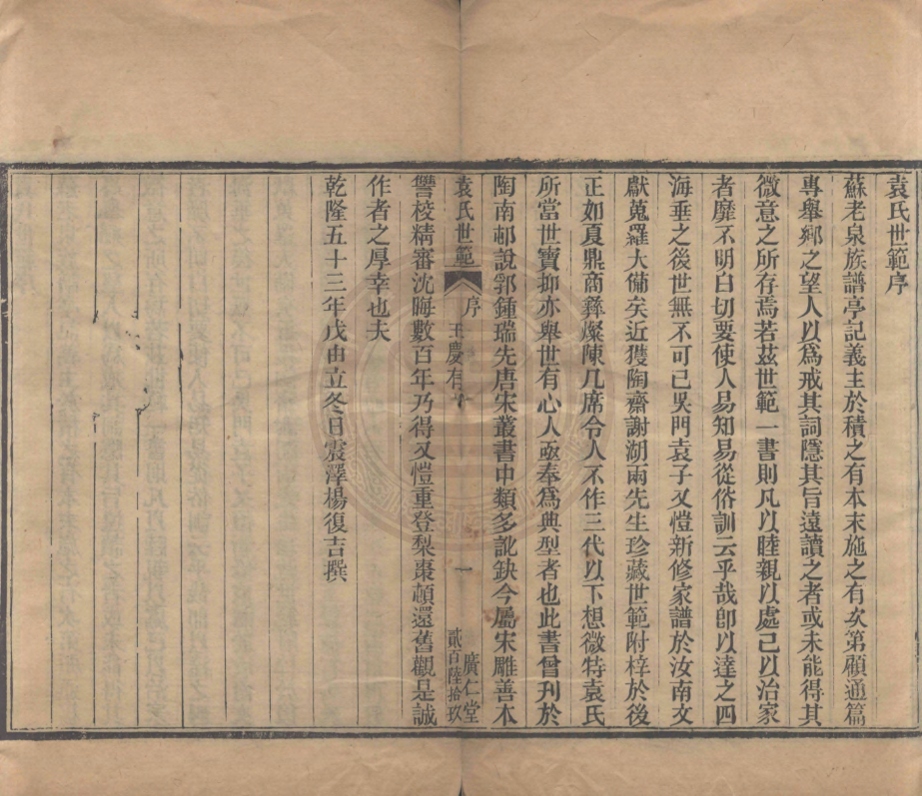 袁氏世範序
蘇老泉族譜亭記義主於積之有本末施之有次第顧通篇
專舉鄉之望人以爲戒其詞隱其旨遠讀之者或未能得其
微意之所存焉若茲世範一書則凡以睦親以處己以治家
者靡不明白切要使人易知易從俗訓云乎哉卽以達之四
海垂之後世無不可已吳門袁子又愷新修家譜於汝南文
獻蒐羅大備矣近獲陶齋謝湖兩先生珍藏世範附梓於後
正如夏鼎商彝燦陳几席令人不作三代以下想微特袁氏
所當世寶抑亦舉世有心人亟奉爲典型者也此書曾刊於
陶南邨說郛鍾瑞先唐宋叢書中類多訛缺今屬宋雕善本
袁氏世範 序 王慶有 一 廣仁堂 貳百陸拾玖
讐校精審沈晦數百年乃得又愷重登梨棗頓還舊觀是誠
作者之厚幸也夫
乾隆五十三年戊申立冬日震澤楊復吉撰